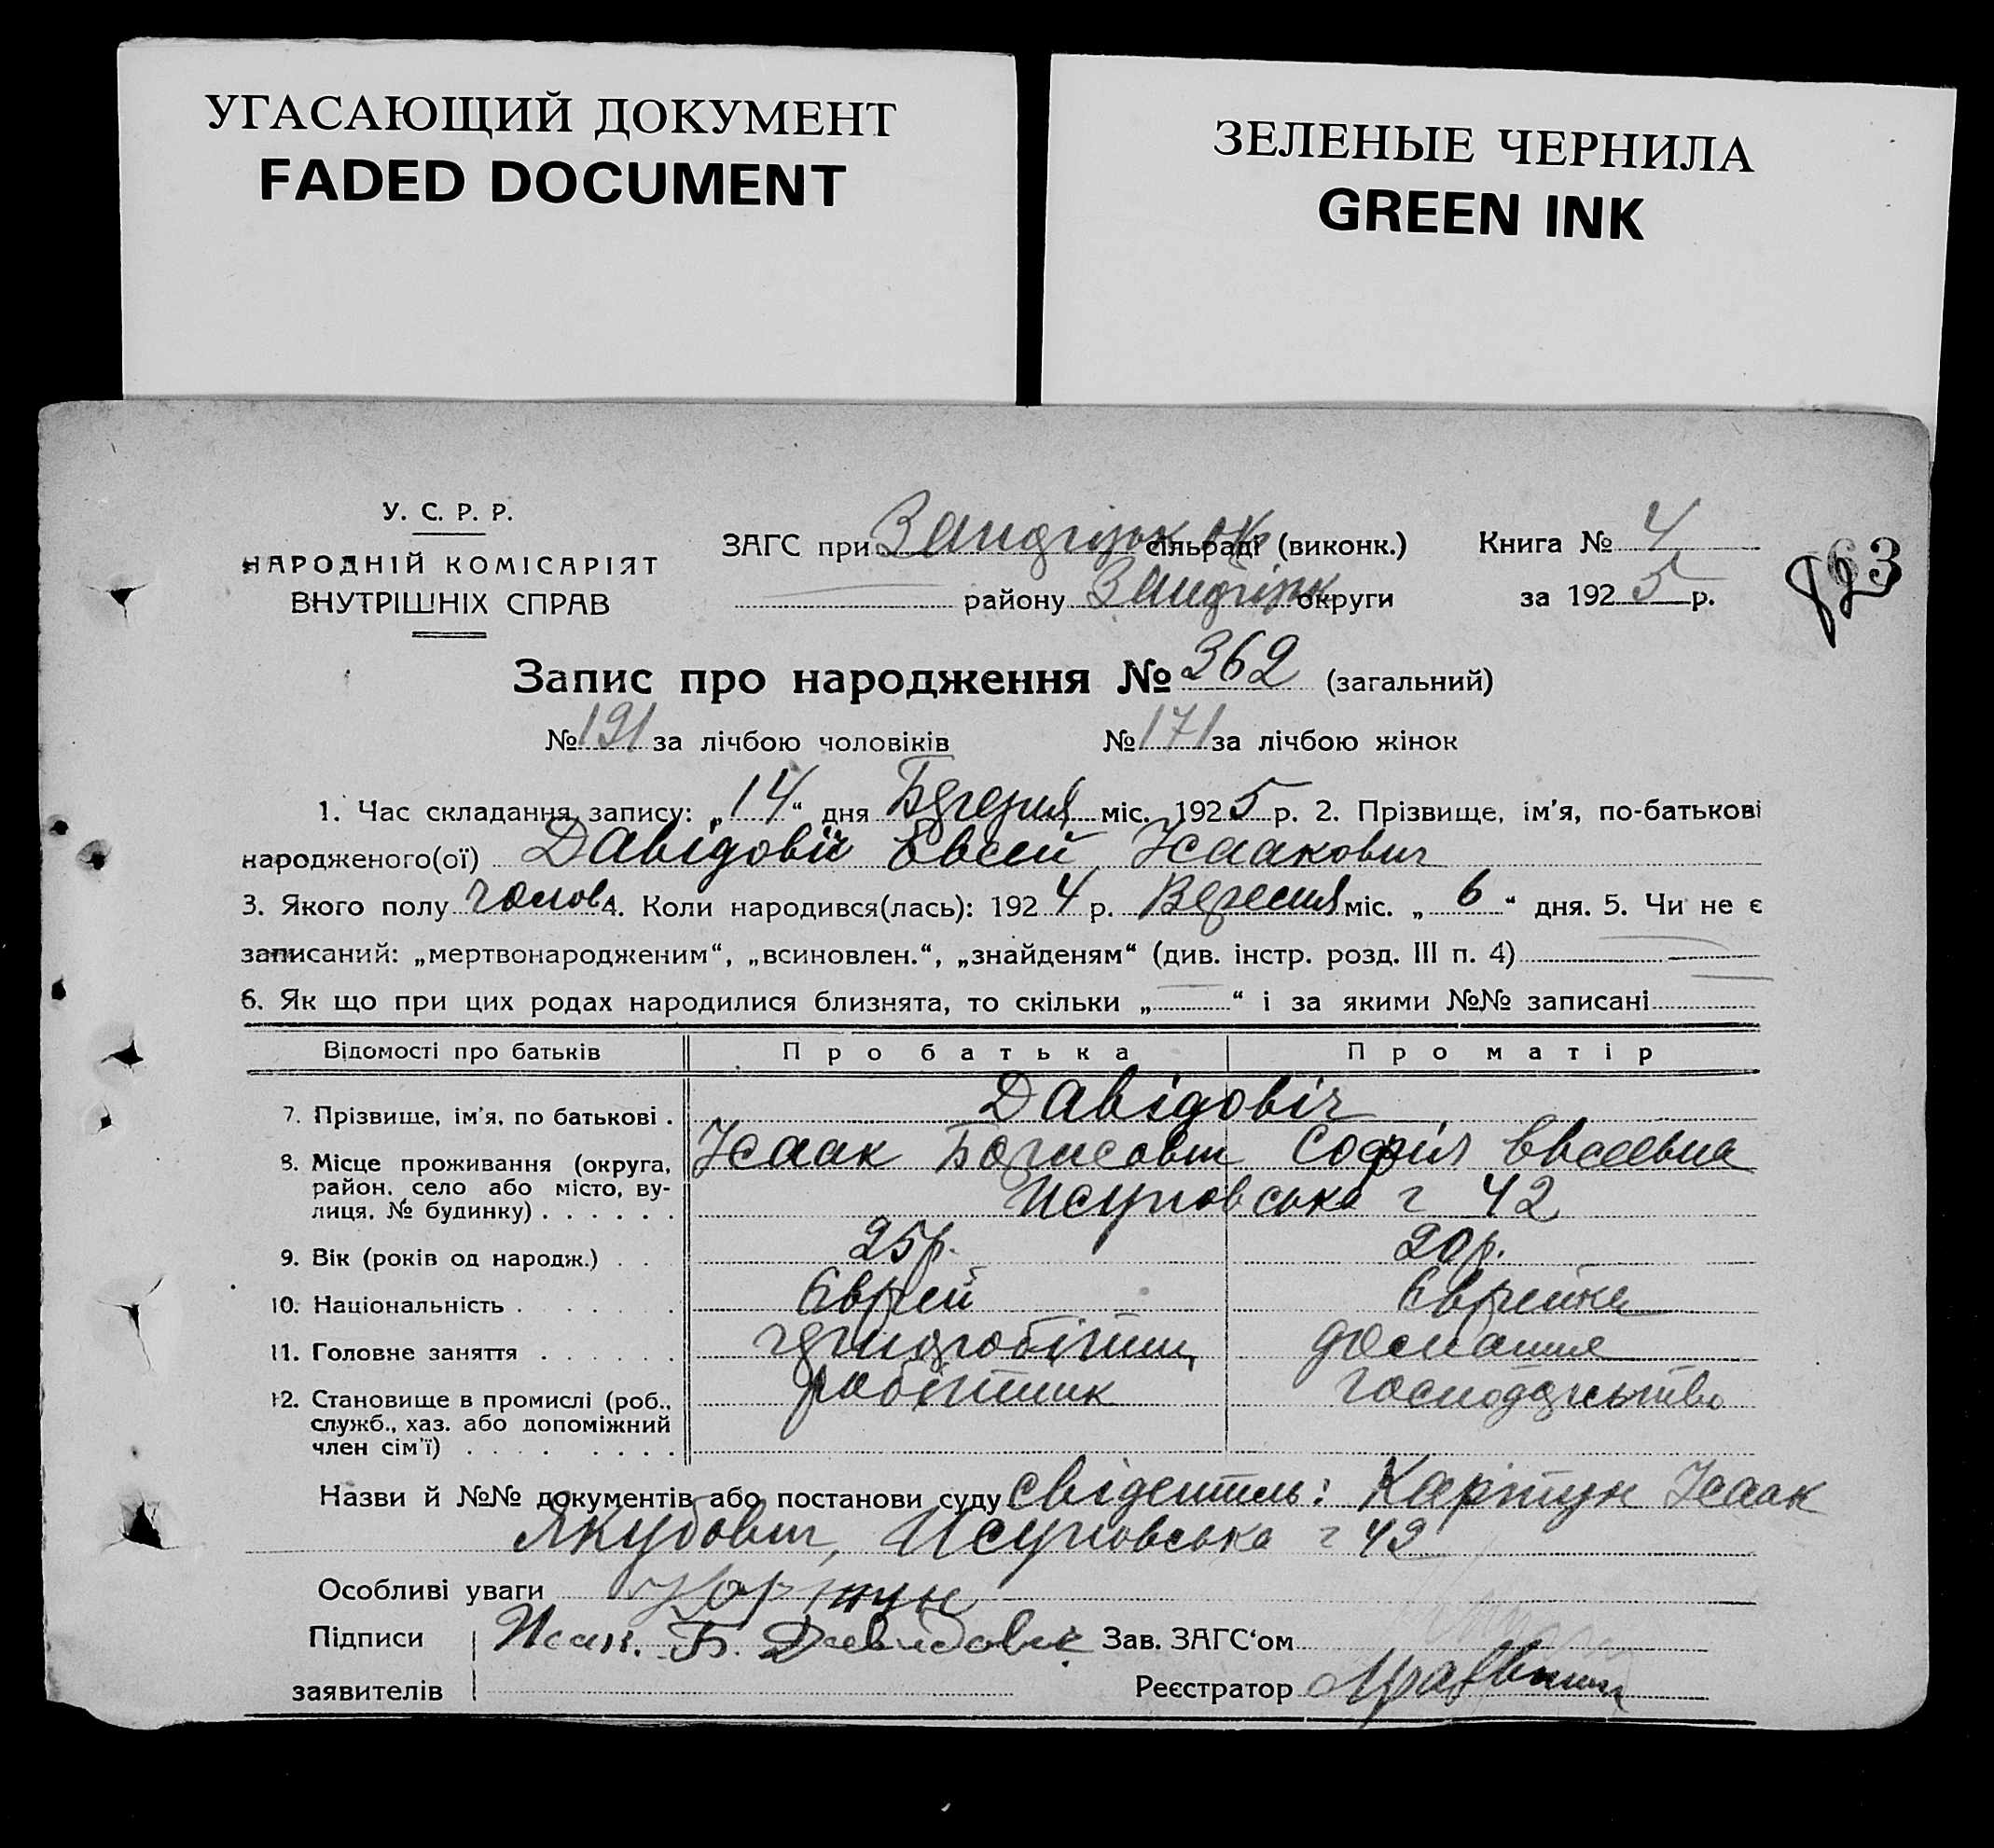 УГАСАЮЩИЙ ДОКУМЕНТ
FADED DOCUMENT
ЗЕЛЕНЫЕ ЧЕРНИЛА
GREEN INK
У. С. Р. Р.
НАРОДНІЙ КОМІСАРІЯТ
ВНУТРІШНІХ СПРАВ
ЗАГС при сільраді (виконк.)
району округи
Книга № 4
за 1925 р.
Запис про народження № 362 (загальний)
№ 191 за лічбою чоловіків № 171 за лічбою жінок
1. Час складання запису: „14“ дня Березня міс. 1925 р. 2. Прізвище, ім'я, по-батькові
народженого(ої) Давідовіч Евсей Ісаакович
3. Якого полу чолов. 4. Коли народився(лась): 1924 р. Вересня міс. „6“ дня. 5. Чи не є
записаний: „мертвонародженим“, „всиновлен.“, „знайденям“ (див. інстр. розд. III п. 4)
6. Як що при цих родах народилися близнята, то скільки „ “ і за якими №№ записані
Відомості про батьків Про батька Про матір
7. Прізвище, ім'я, по батькові . Давідовіч
Ісаак Борисович Софія Евсеевна
8. Місце проживання (округа,
район, село або місто, ву-
лиця, № будинку) . . . . . . 42
9. Вік (років од народж.) . . 25р. 20р.
10. Національність . . . . . Єврей Єврейка
11. Головне заняття . . . . . . чорноробітник домашнє
12. Становище в промислі (роб.,
служб., хаз. або допоміжний
член сім'ї) . . . . . . . . робітник господарство
Назви й №№ документів або постанови суду свідетель: Картун Ісаак
Якубович, 42
Особливі уваги Картун
Підписи Исак. Б. Давидович Зав. ЗАГС'ом
заявителів Реєстратор